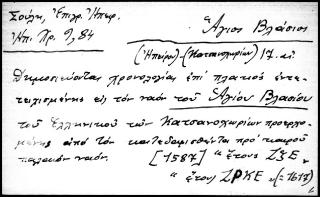 Σούλη, Ἐπιγρ. Ἠπειρ.
Ἠπ. Χρ. 9, 84
Ἅγιος Βλάσιος
(Ἠπείρου)-(Κατσανοχωρίων) 17. αἰ
Δημοσιεύονται χρονολογίαι ἐπὶ πλακὸς ἐντε-
τειχισμένης εἰς τὸν ναὸν τοῦ Ἁγίου Βλασίου
τοῦ Ἑλληνικοῦ τῶν Κατσανοχωρίων προερχο-
μένης ἀπὸ τὸν κατεδαφισθέντα πρὸ καιροῦ
παλαιὸν ναόν. [1587] "ἔτους ΖϟΕ"
"ἔτους ΖΡΚΕ" (=1617)